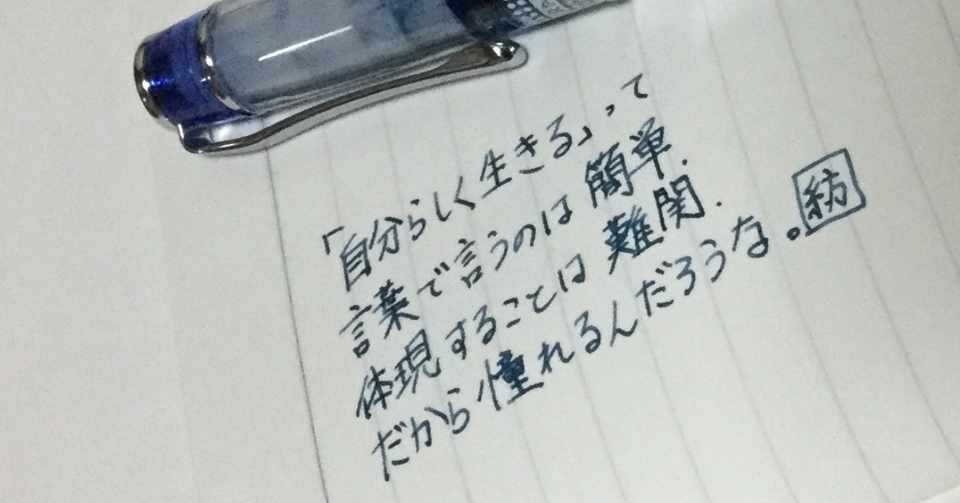 「自分らしく生きる」って
言葉で言うのは簡単.
体現することは難関.
だから憧れるんだろうな。紡